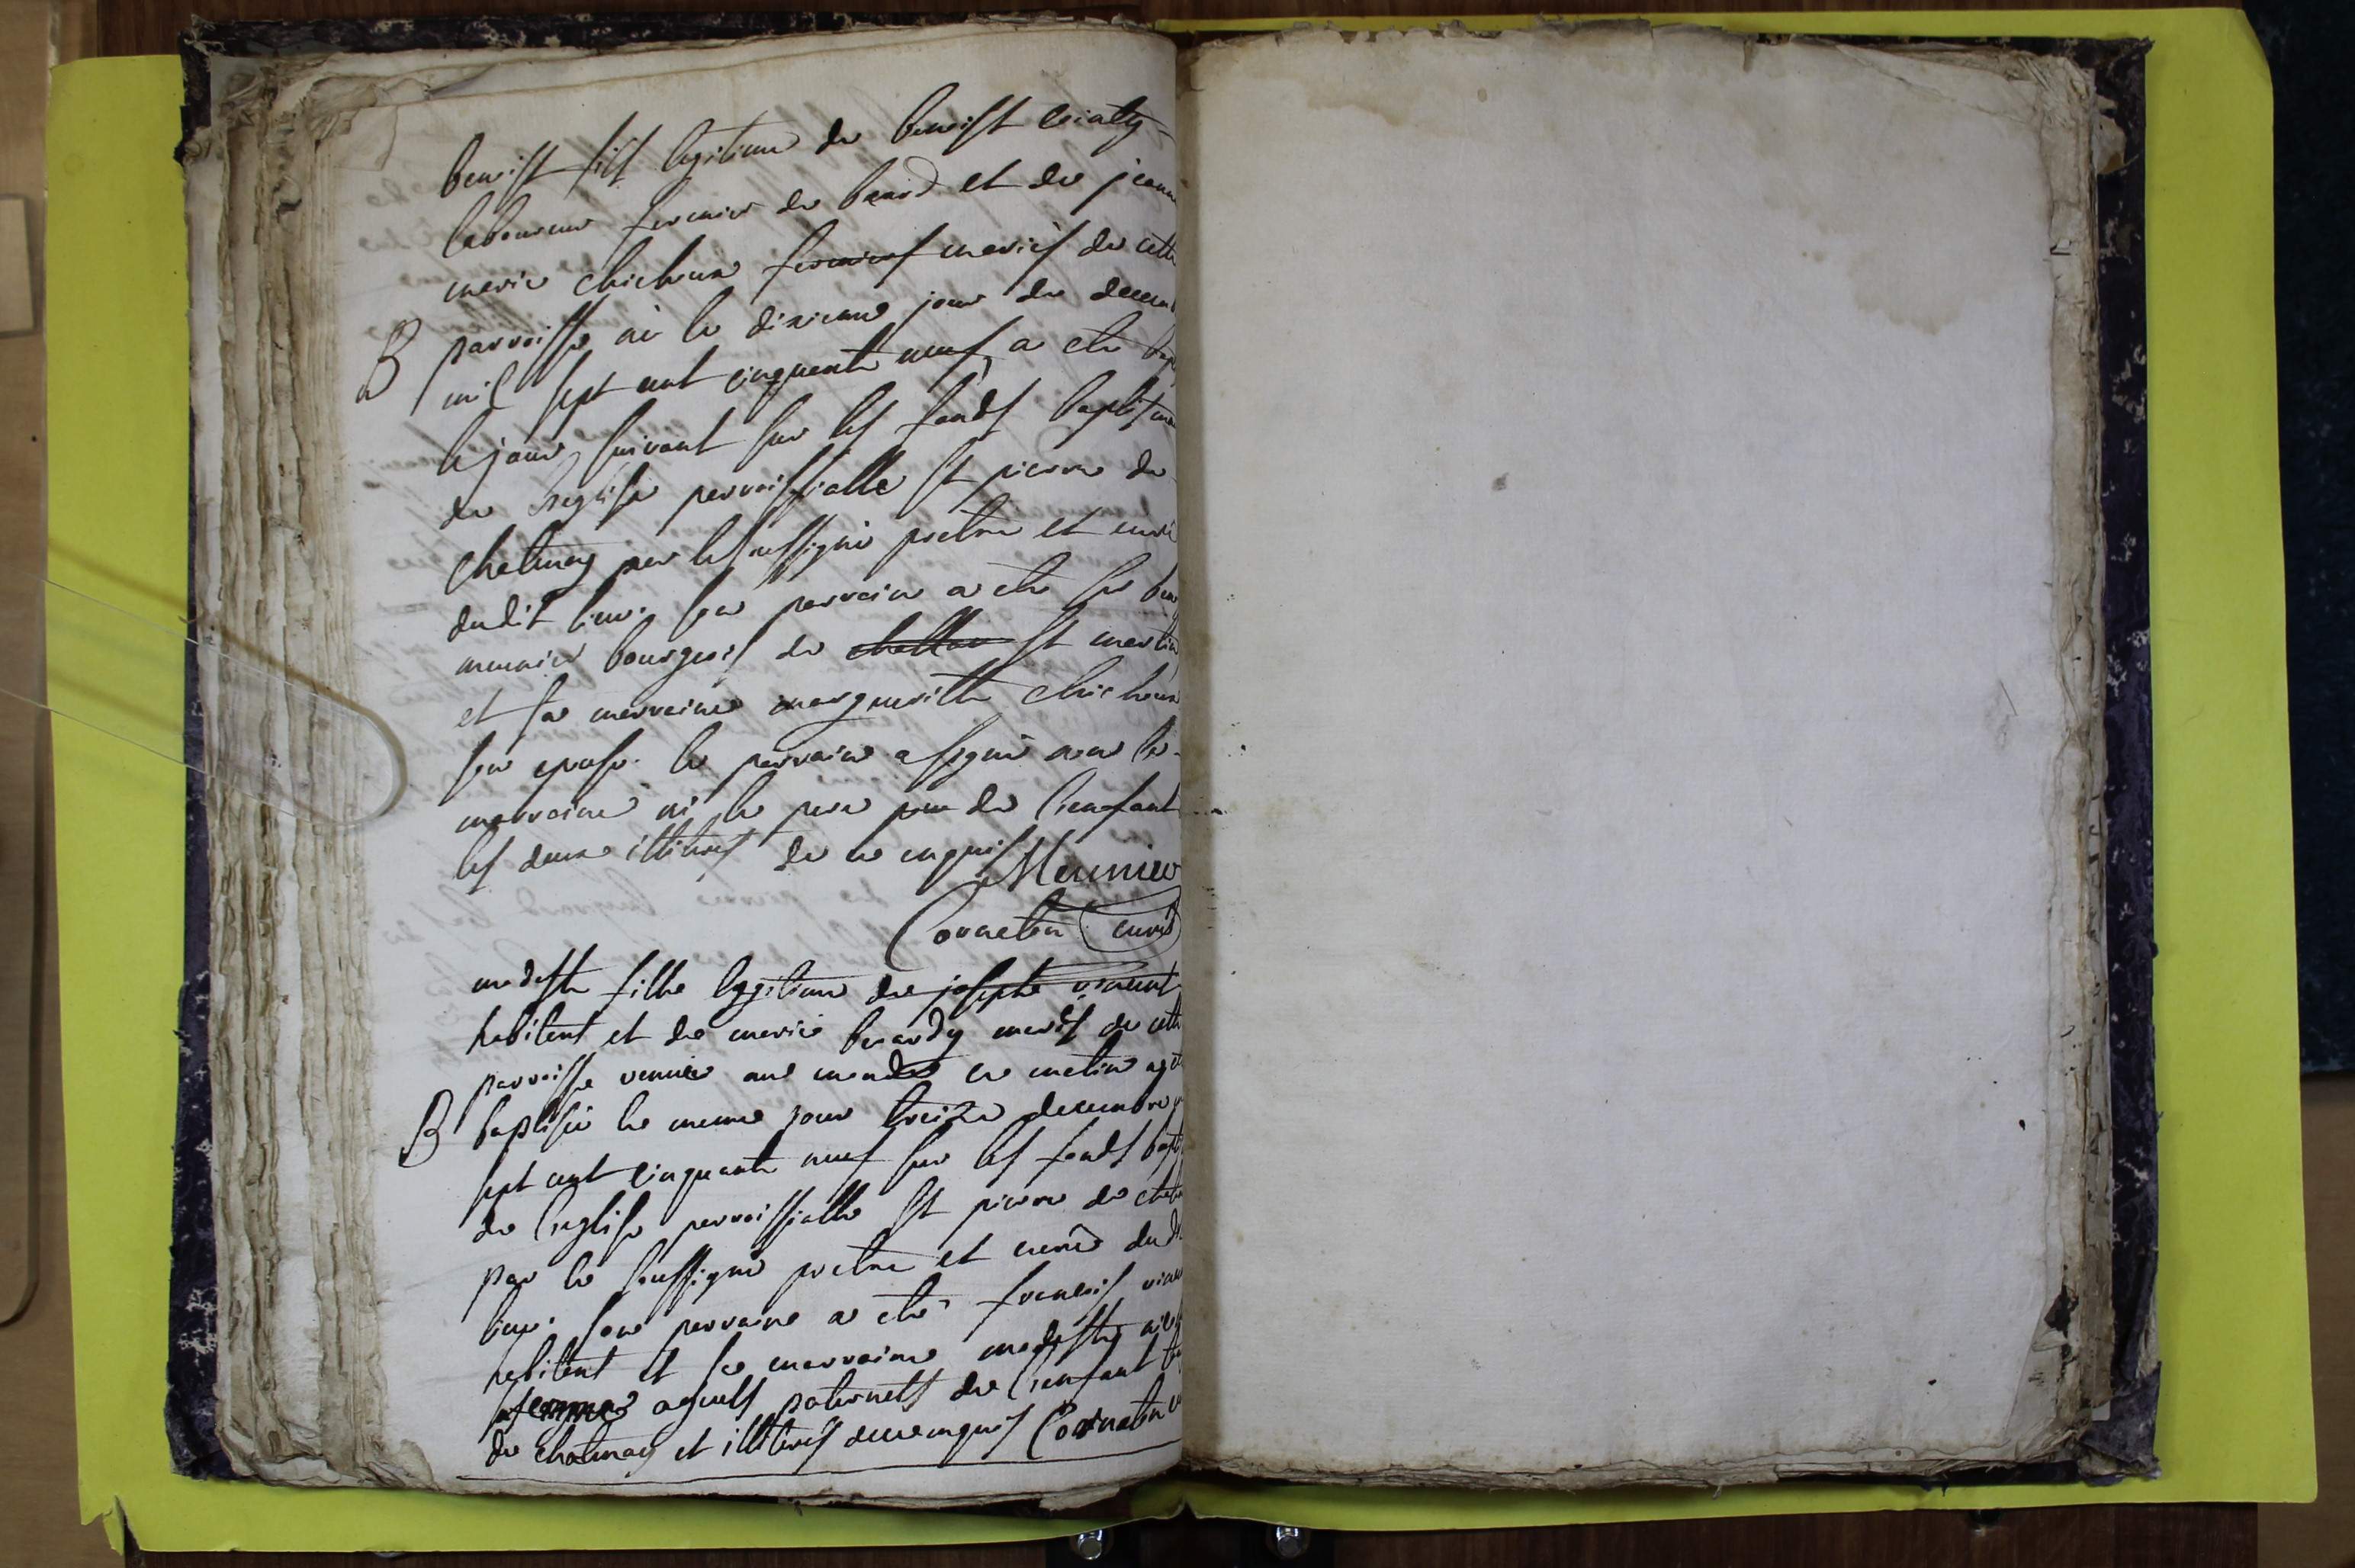 benoist fils legitime de benoist
laboureur fermier de et de jeanne
marie chicheux fermiers mariés de cette
B parroisse né le dixieme jour de decemb
mil sept cent cinquante neuf, a ete bapt
le jour suivant sur les fonds baptismau
de l'eglise parroissialle st pierre de
chatenay par le soussigné pretre et curé
dudit lieu. son parrain a ete sr
meunier bourgeois de st martin
et sa marraine margueritte chicheux
son epouse. le parrain a signé non la
marraine ni le pere de l'enfant
les deux illiteres de ce enquis Meunier
Corneton curé
modeste fille legitime de josephe vincent
habitent et de marie berardy mariés de cette
parroisse venüe au monde ce matin a eté
B baptisée le meme jour treize decembre
sept cent cinquante neuf sur les fonds bapt
de l'eglise parroissialle st pierre de chate
par le soussigné pretre et curé dud
lieu. son parraine a eté francois vinc
habitent et sa marraine modeste
sa femme ayeuls paternels de l'enfant
de chatenay et illiteres de ce enquis Corneton